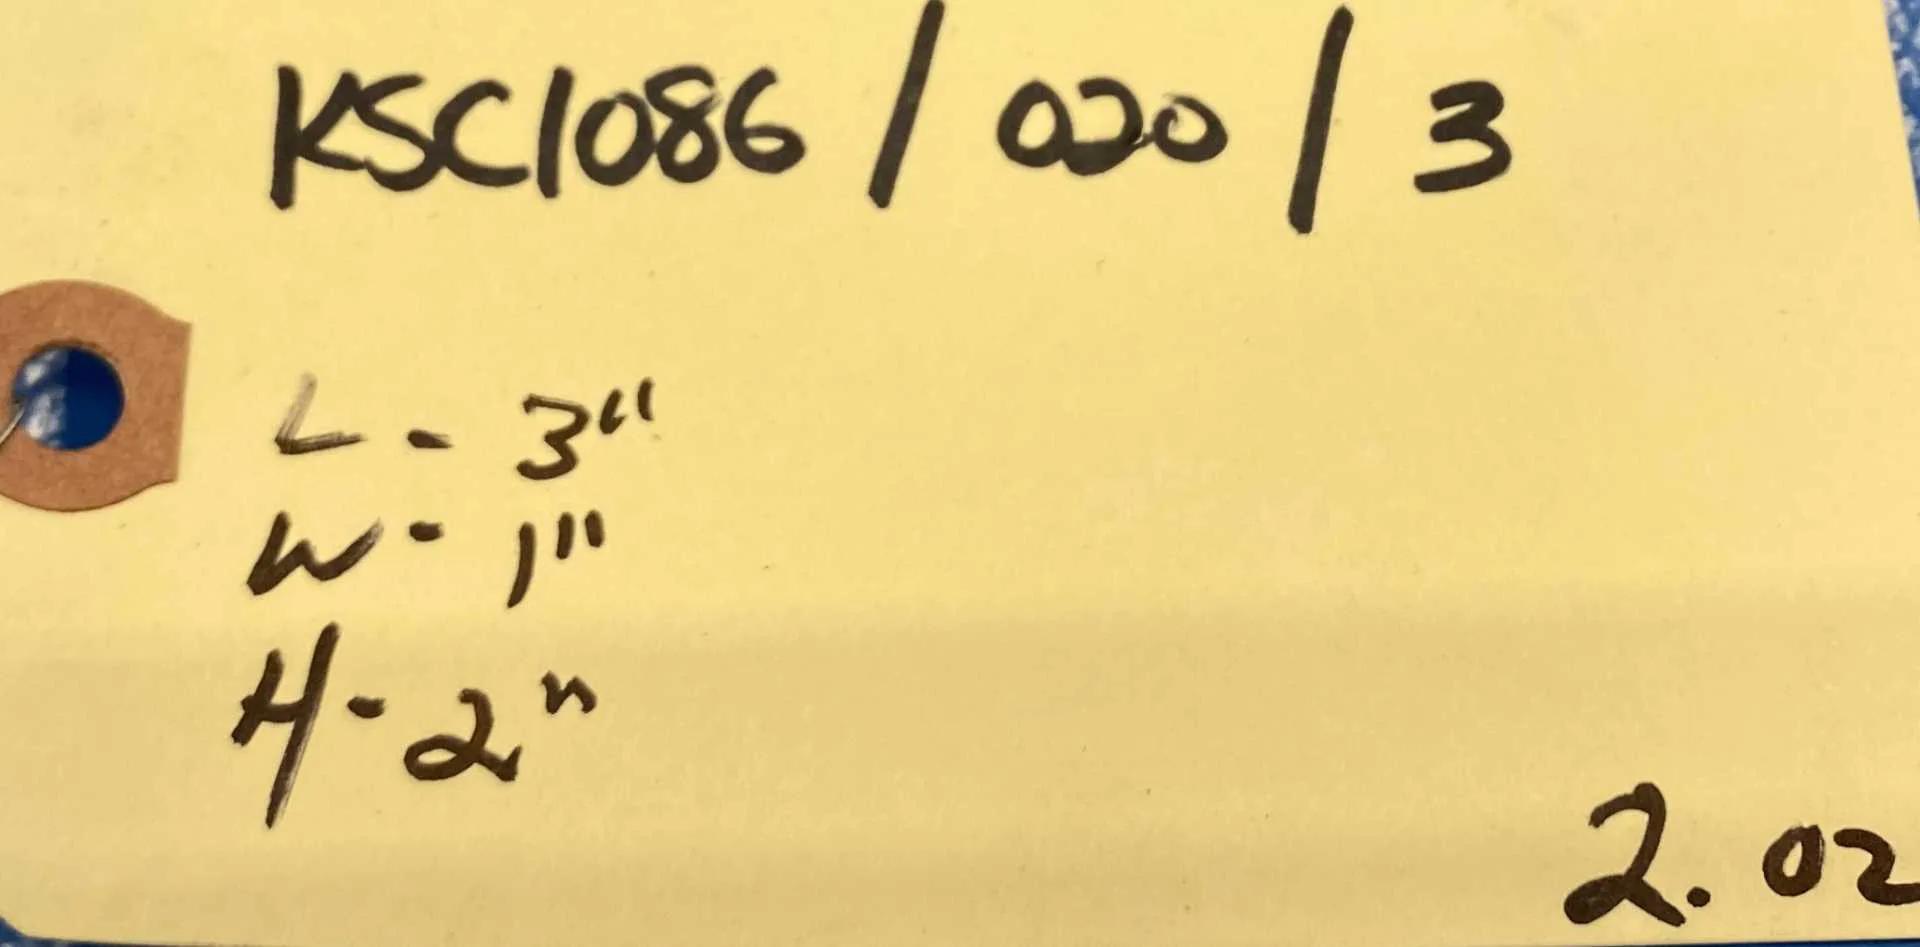 KSC1086 / 020 / 3
L - 3"
W - 1"
H - 2"
2.02